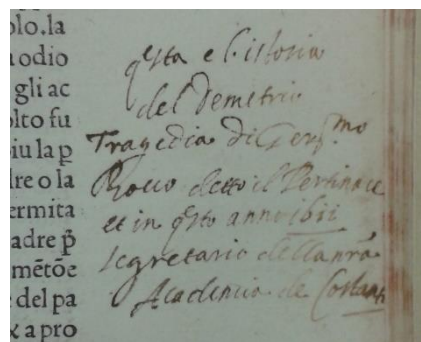 olo.la
a odio
gli ac
olto fu
piu la p̱
dre o la
ermita
adre p̄
mētōe
e del pa
x a pro
q̃sta e l'istoria
del Demetrio
Tragedia di Ger.mo
Rocco detto il Pertinace
et in q̃sto anno
segretario della nrã
Academia de Costanti